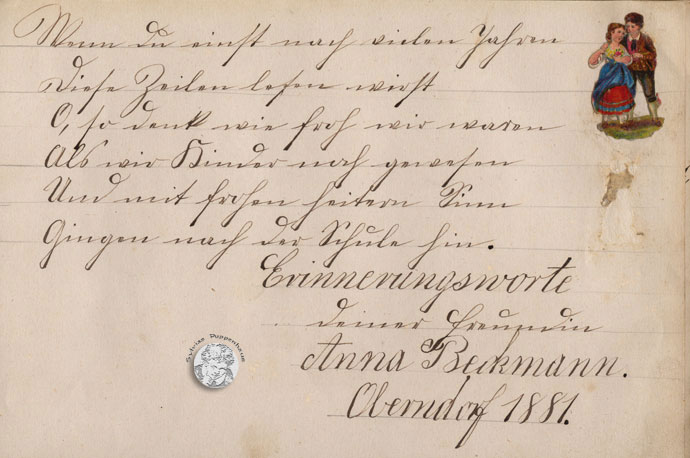 Wenn du einst nach vielen Jahren
Diese Zeilen lesen wirst
O, so denk wie froh wir waren
Als wir Kinder noch gewesen
Und mit frohen heitern Sinn
Gingen nach der Schule hin.
Erinnerungsworte
deiner Freundin
Anna Beckmann.
Oberndorf 1881.
Sylvias Puppenhaus